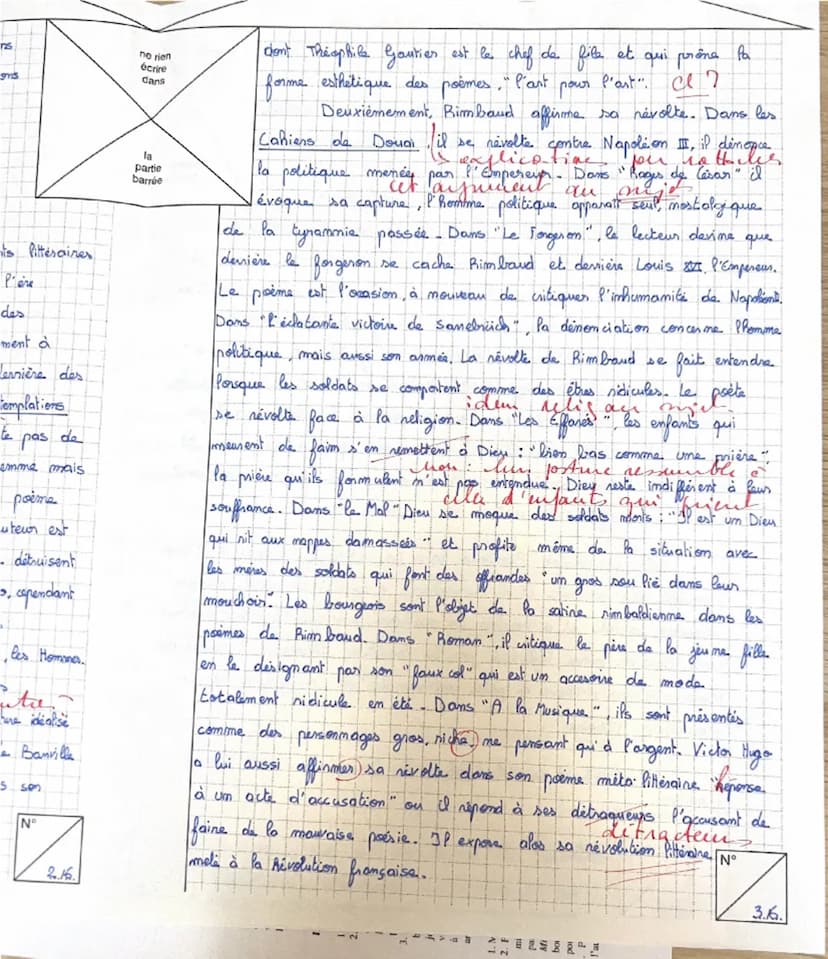 ne rien
écrire
dans
la
partie
barrée
dont Théophile Gautier est le chef de file et qui prône la
forme esthétique des poèmes, "l'art pour l'art". cl ?
Deuxièmement, Rimbaud affirme sa révolte. Dans les
Cahiers de Douai, il se révolte contre Napoléon III, il dénonce
explication pour rattacher
la politique menée par l'Empereur. Dans "Rages de César" il
cet argument au sujet
évoque sa capture, l'homme politique apparaît seul, nostalgique
de la tyrannie passée. Dans "Le Forgeron", le lecteur devine que
derrière le forgeron se cache Rimbaud et derrière Louis XVI l'Empereur.
Le poème est l'occasion, à nouveau de critiquer l'inhumanité de Napoléon.
Dans "L'éclatante victoire de Sarrebrück", la dénonciation concerne l'Homme
politique, mais aussi son armée. La révolte de Rimbaud se fait entendre
lorsque les soldats se comportent comme des êtres ridicules. Le poète
idem relig au sujet
se révolte face à la religion. Dans "Les Effarés", les enfants qui
meurent de faim s'en remettent à Dieu : "bien bas comme une prière",
non : leur posture ressemble à
la prière qu'ils formulent n'est pas entendue. Dieu reste indifférent à leur
celle d'enfants qui prient
souffrance. Dans "le Mal" Dieu se moque des soldats morts : "Il est un Dieu
qui rit aux nappes damassées" et profite même de la situation avec
les mères des soldats qui font des offrandes "un gros sou lié dans leur
mouchoir". Les bourgeois sont l'objet de la satire rimbaldienne dans les
poèmes de Rimbaud. Dans "Roman", il critique le père de la jeune fille
en le désignant par son "faux col" qui est un accesoire de mode
totalement ridicule en été. Dans "A la Musique", ils sont présentés
comme des personnages gros, riche, ne pensant qu'à l'argent. Victor Hugo
a lui aussi affirmer sa révolte dans son poème méta-littéraire "Réponse
à un acte d'accusation" ou il répond à ses détraqueurs l'accusant de
détracteurs
faire de la mauvaise poésie. Il expose alos sa révolution littéraire
melé à la Révolution française.
N°
3.16.
ns
ons
ts littéraires
l'ère
des
ment à
dernière des
templations
te pas de
emme mais
poème
uteur est
. détruisent
, cependant
, les Hommes.
ure idéalisé
e Banville
s son
N°
2.16.